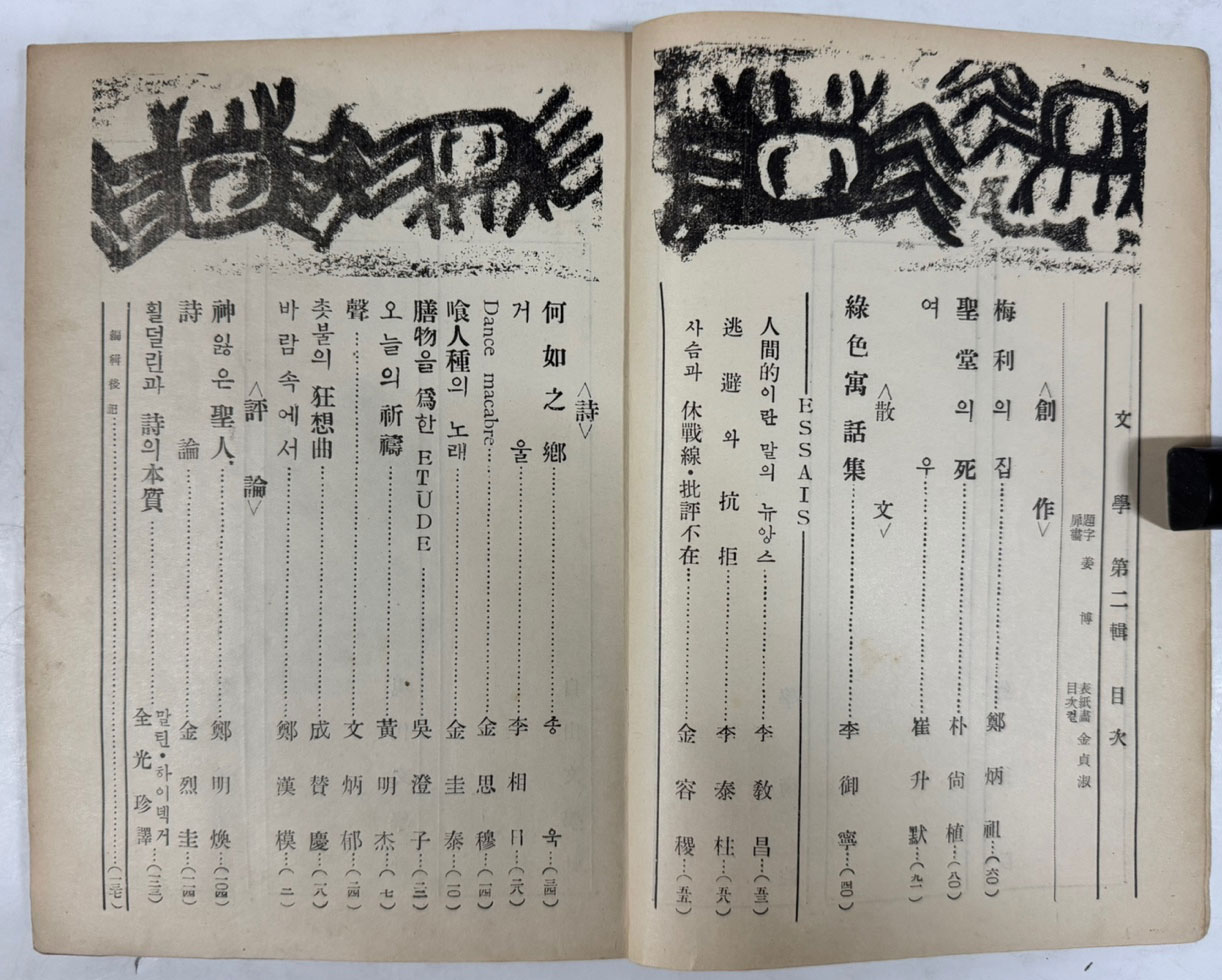 文學 第二輯 目次
題字 扉畫 姜博
表紙畫 目次컽 金貞淑
<創作>
梅利의 집 鄭炳祖 (六〇)
聖堂의 死 朴尙植 (八〇)
여우 崔升默 (九一)
<散文>
綠色寓話集 李御寧 (四〇)
ESSAIS
人間的이란 말의 뉴앙스 李敎昌 (五三)
逃避와 抗拒 李泰柱 (五八)
사슴과 休戰線・批評不在 金容稷 (五五)
<詩>
何如之鄕 송욱 (三四)
거울 李相日 (二八)
Dance macabre 金思穆 (一四)
喰人種의 노래 金圭泰 (一〇)
膳物을 爲한 ETUDE 吳澄子 (二二)
오늘의 祈禱 黃明杰 (七)
聲 文炳郁 (二四)
촛불의 狂想曲 成賛慶 (一八)
바람속에서 鄭漢模 (二)
<評論>
神잃은 聖人 鄭明煥 (一〇四)
詩論 金烈圭 (一一四)
횔덜린과 詩의 本質 말틴・하이덱거 全光珍譯 (一二三)
編輯後記 (一三七)